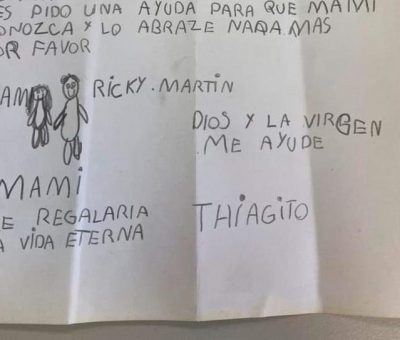 ES PIDO UNA AYUDA PARA QUE MAMI
ONOZCA Y LO ABRAZE NADA MAS
OR FAVOR
AMI RICKY.MARTIN
DIOS Y LA VIRGEN
ME AYUDE
MAMI
E REGALARIA
A VIDA ETERNA
THIAGITO